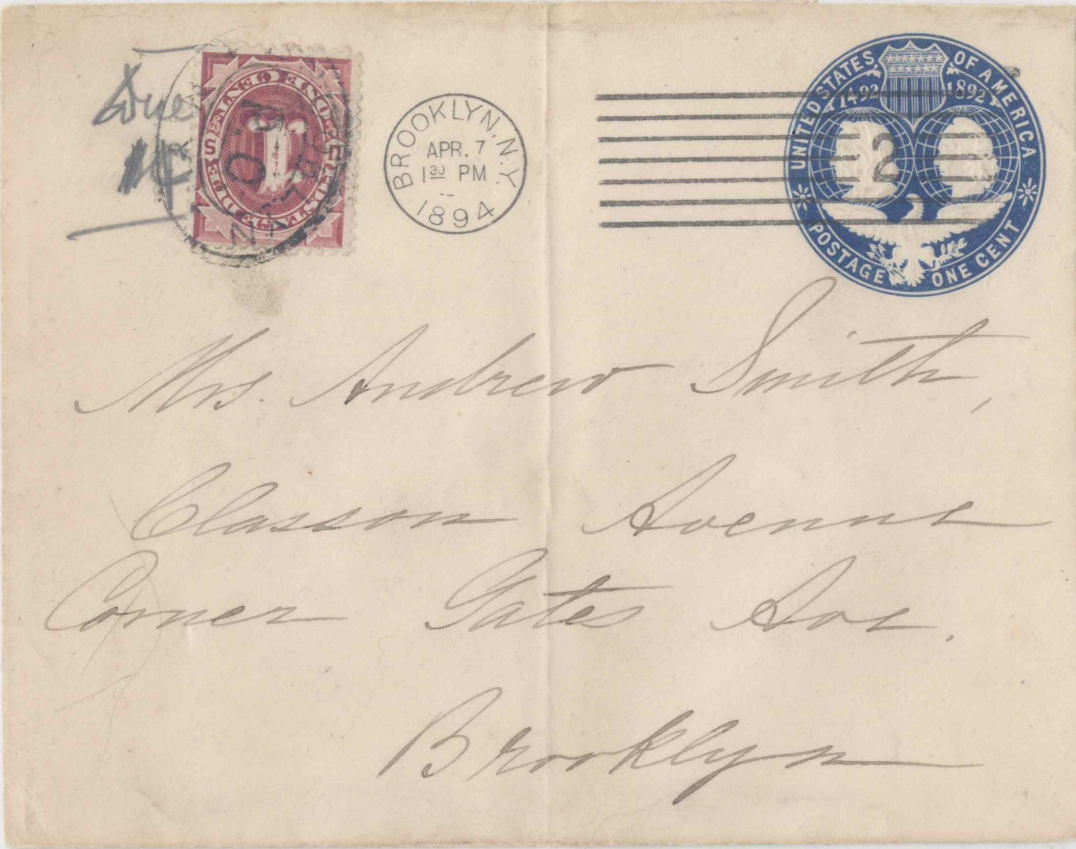 Due
1¢
POSTAGE DUE ONE CENT
1
BROOKLYN, N.Y.
APR. 7
1 30 PM
1894
UNITED STATES OF AMERICA
1492 1892
2
POSTAGE ONE CENT
Mrs. Andrew Smith,
Classon Avenue
Corner Gates Ave.
Brooklyn